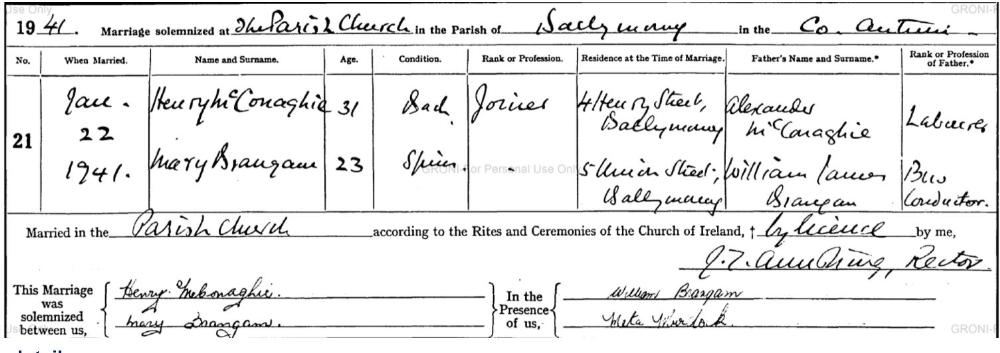 Use Only
GRONI-F
1941. Marriage solemnized at The Parish Church in the Parish of Ballymoney in the Co. Antrim
No. When Married. Name and Surname. Age. Condition. Rank or Profession. Residence at the Time of Marriage. Father's Name and Surname.* Rank or Profession of Father.*
21
Jan. 22 1941.
Henry McConaghie 31 Bach Joiner 4 Henry Street, Ballymoney Alexander McConaghie Labourer
Mary Brangam 23 Spin. 5 Union Street, Ballymoney William James Brangan Bus Conductor.
GRONI-For Personal Use Only
Married in the Parish Church according to the Rites and Ceremonies of the Church of Ireland, † by licence by me,
Armstrong, Rector
This Marriage was solemnized between us, { Henry McConaghie. } In the Presence of us, { William Brangam
Mary Brangam. Meta
GRONI-F